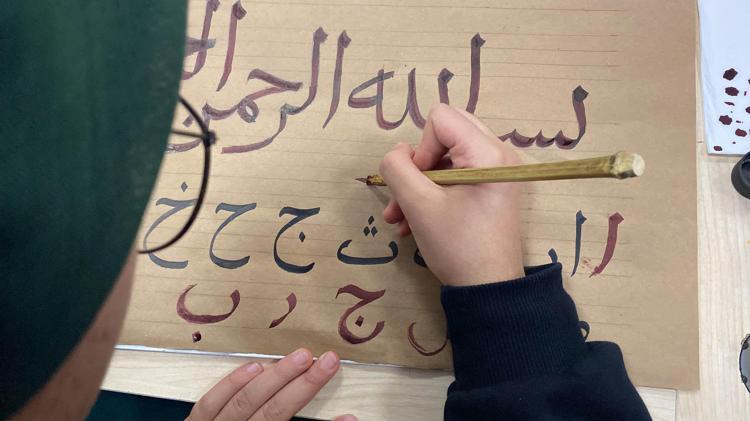 بسم الله الرحمن
ا ا ث ج ح خ
ج ر ب